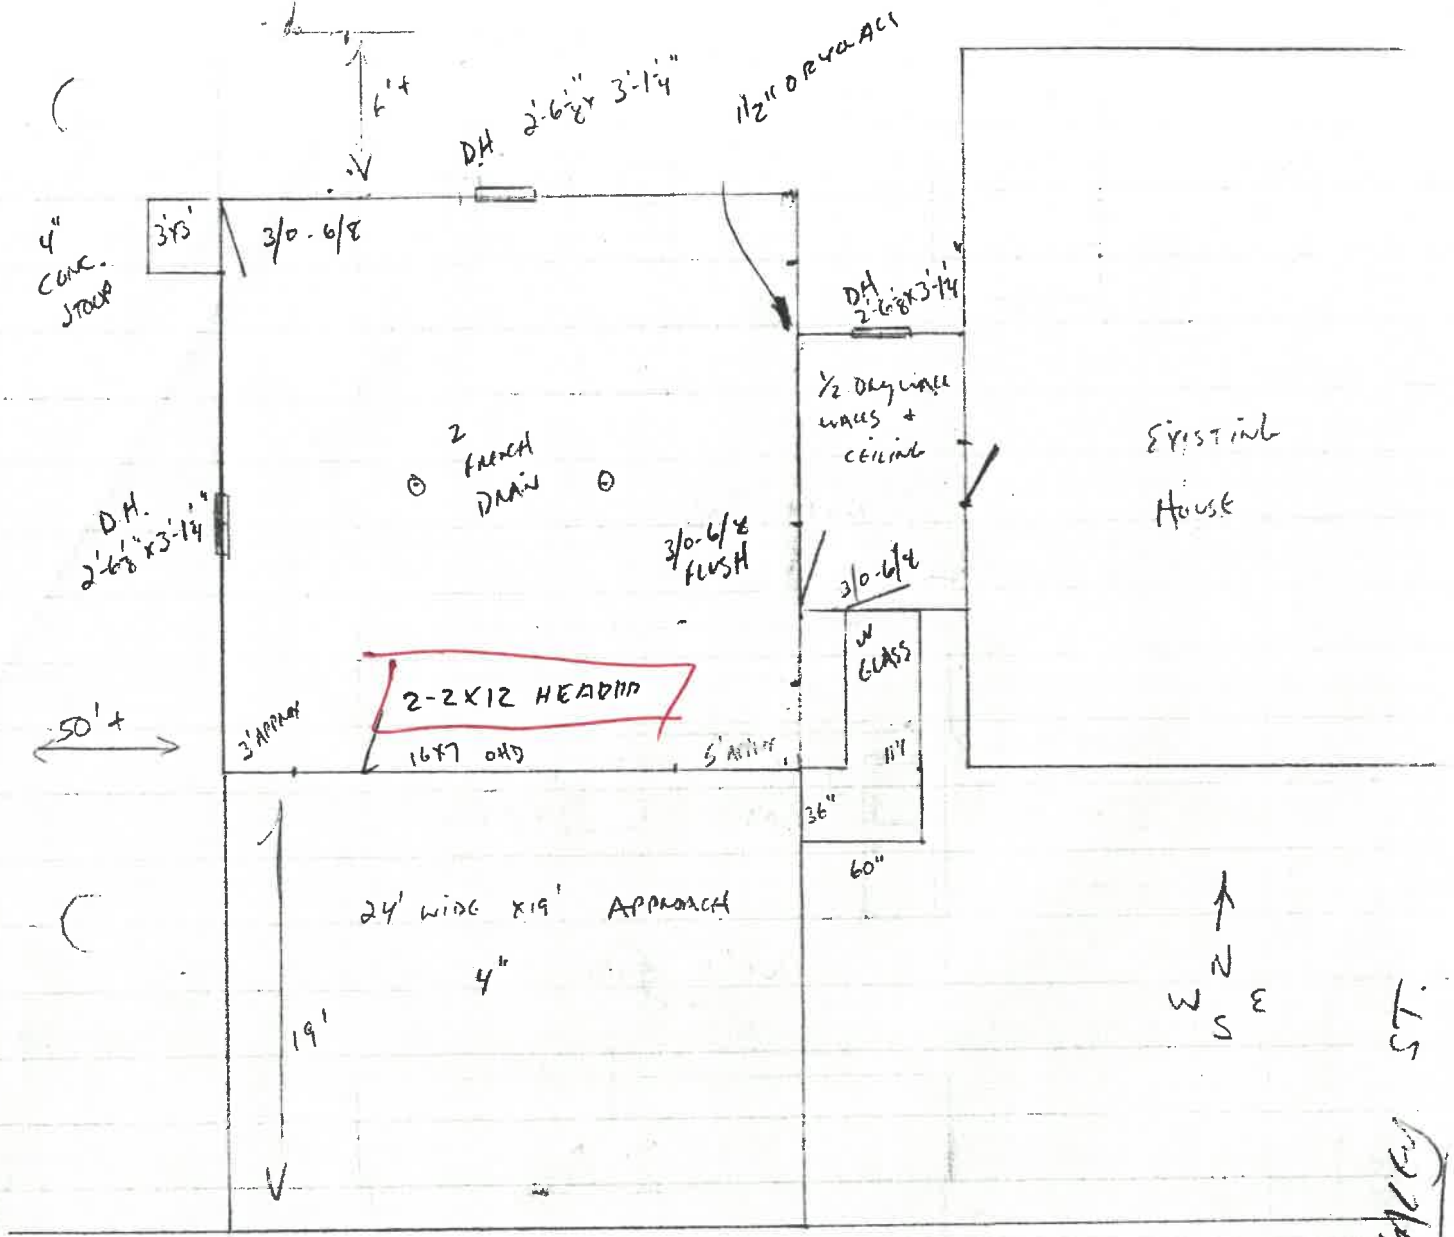 6'+
DH.
2'-6⅛" x 3'-1¼"
1/2" DRYWALL
4"
CONC.
STOOP
3'x3'
3/0-6/8
DH
2'-6⅛ x 3'-1¼"
1/2 DRYWALL
WALLS +
CEILING
EXISTING
HOUSE
2
FRENCH
DRAIN
D.H.
2'-6⅛" x 3'-1¼"
3/0-6/8
FLUSH
3/0-6/8
W
GLASS
2-2X12 HEADER
50'+
3' APPROX
16X7 OHD
5'
36"
60"
24' WIDE X19' APPROACH
4"
19'
N
W E
S
ST.